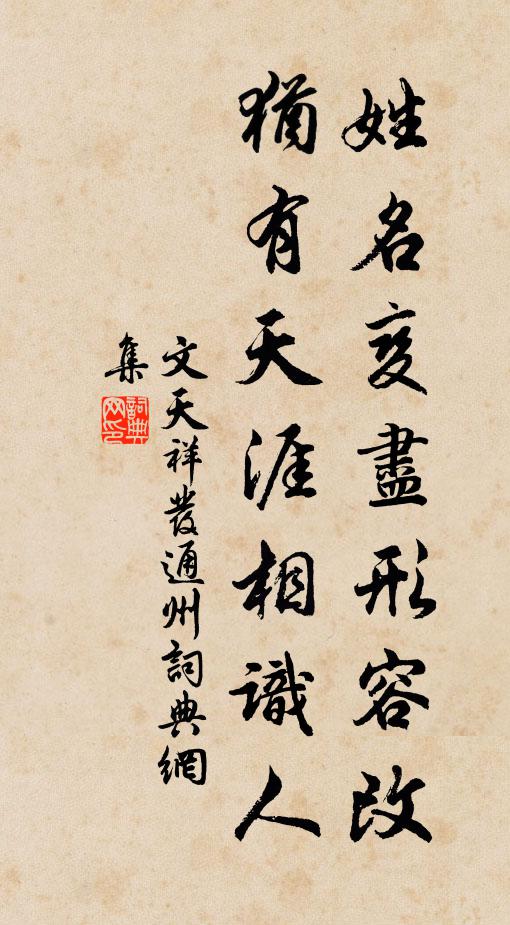 姓名变盡形容改
猶有天涯相識人
文天祥發通州詞典網
集
詞典网印